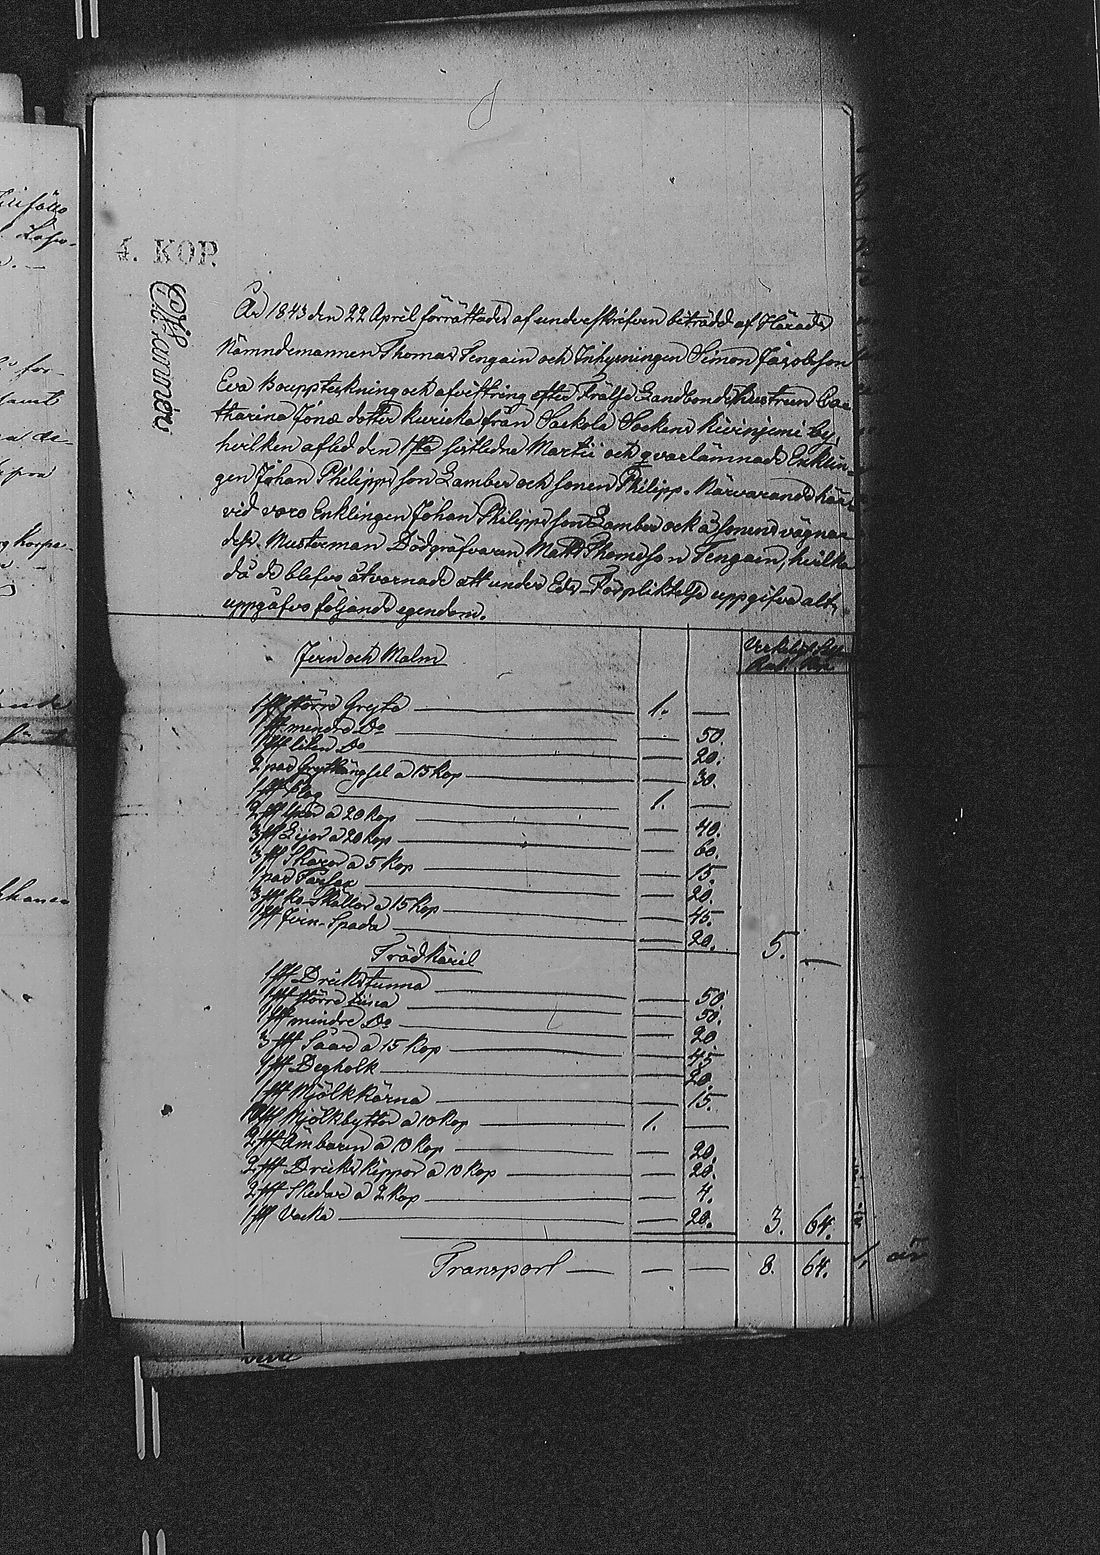 4. KOP.
År 1843 den 22 April förrättades af underskrifven biträdd af Härads
Nämndemannen Thomas Tengain och Inhysningen Simon Jacobsson
Eva Bouppteckning och afvittring efter Frälse Landbondehustrun Ca-
tharina Jonæ dotter Kuricka från Sackola Socken Kivinjemi by,
hvilken afled den 1sta sistledne Martii och qvarlämnade Enklin-
gen Johan Philipps son Lamber och sonen Philipp. Närvarande här-
vid voro Enklingen Johan Philipps son Lamber och å sonens vägnar
dess Musterman Dödgräfvaren Matts Thomsson Tengain, hvilka
då de blefvo åtvarnade att under Eds-Förpliktelse uppgifva alt,
uppgåfvo följande egendom.
Jern och Malm
1 st större Gryta 1. —
1 st mindre Do — 50.
1 st liten Do — 20.
2 par Grythängsel a 15 Kop — 30.
1 st Plog 1. —
2 st Yxor a 20 Kop — 40.
3 st Lijor a 20 Kop — 60.
3 st Skäror a 5 Kop — 15.
1 par — 20.
3 st Ko-Skällor a 15 Kop — 45.
1 st Jern-Spada — 20. 5. —
Trädkäril
1 st Dricktunna — 50
1 st större — 50.
1 st mindre Do — 20
3 st Såar a 15 Kop — 45
1 st Degholk — 20.
1 st Mjölkkärna — 15.
10 st Mjölkbyttor a 10 Kop 1. —
2 st Ämbaren a 10 Kop — 20.
2 st Dricks Kippor a 10 Kop — 20.
2 st Skedar a 2 Kop — 4.
1 st Vacka — 20. 3. 64.
Transport — — — 8. 64.